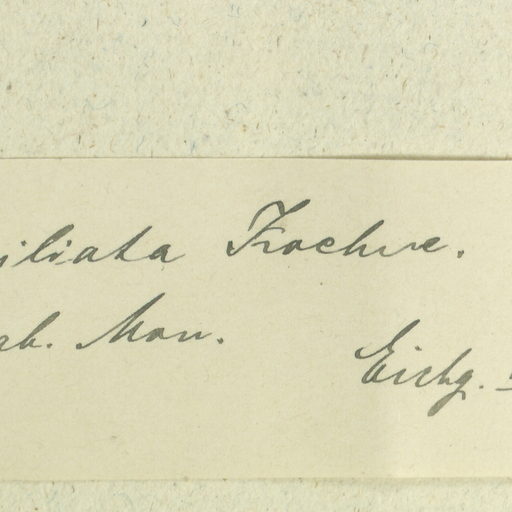 iliata Koehne.
ab. Mon.
Eichg.